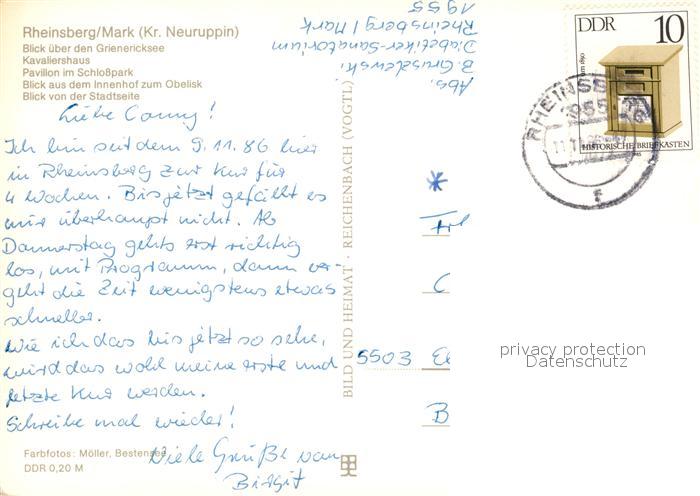 Rheinsberg/Mark (Kr. Neuruppin)
Blick über den Grienericksee
Kavaliershaus
Pavillon im Schloßpark
Blick aus dem Innenhof zum Obelisk
Blick von der Stadtseite
Liebe Conny!
Ich bin seit dem 9.11.86 hier
in Rheinsberg zur Kur für
4 Wochen. Bis jetzt gefällt es
mir überhaupt nicht. Ab
Donnerstag gehts erst richtig
los, mit Programm, dann ver-
geht die Zeit wenigstens etwas
schneller.
Wie ich das bis jetzt so sehe,
wird das wohl meine erste und
letzte Kur werden.
Schreibe mal wieder!
Viele Grüße von
Birgit
Farbfotos: Möller, Bestensee
DDR 0,20 M
BILD UND HEIMAT · REICHENBACH (VOGTL)
Abs.
B. Gruszlewski
Diabetiker-Sanatorium
Rheinsberg / Mark
1955
DDR 10
um 1850
HISTORISCHE BRIEFKASTEN
RHEINSB
1955
11.11.86
f
*
Frl
C
5503 El
B
privacy protection
Datenschutz